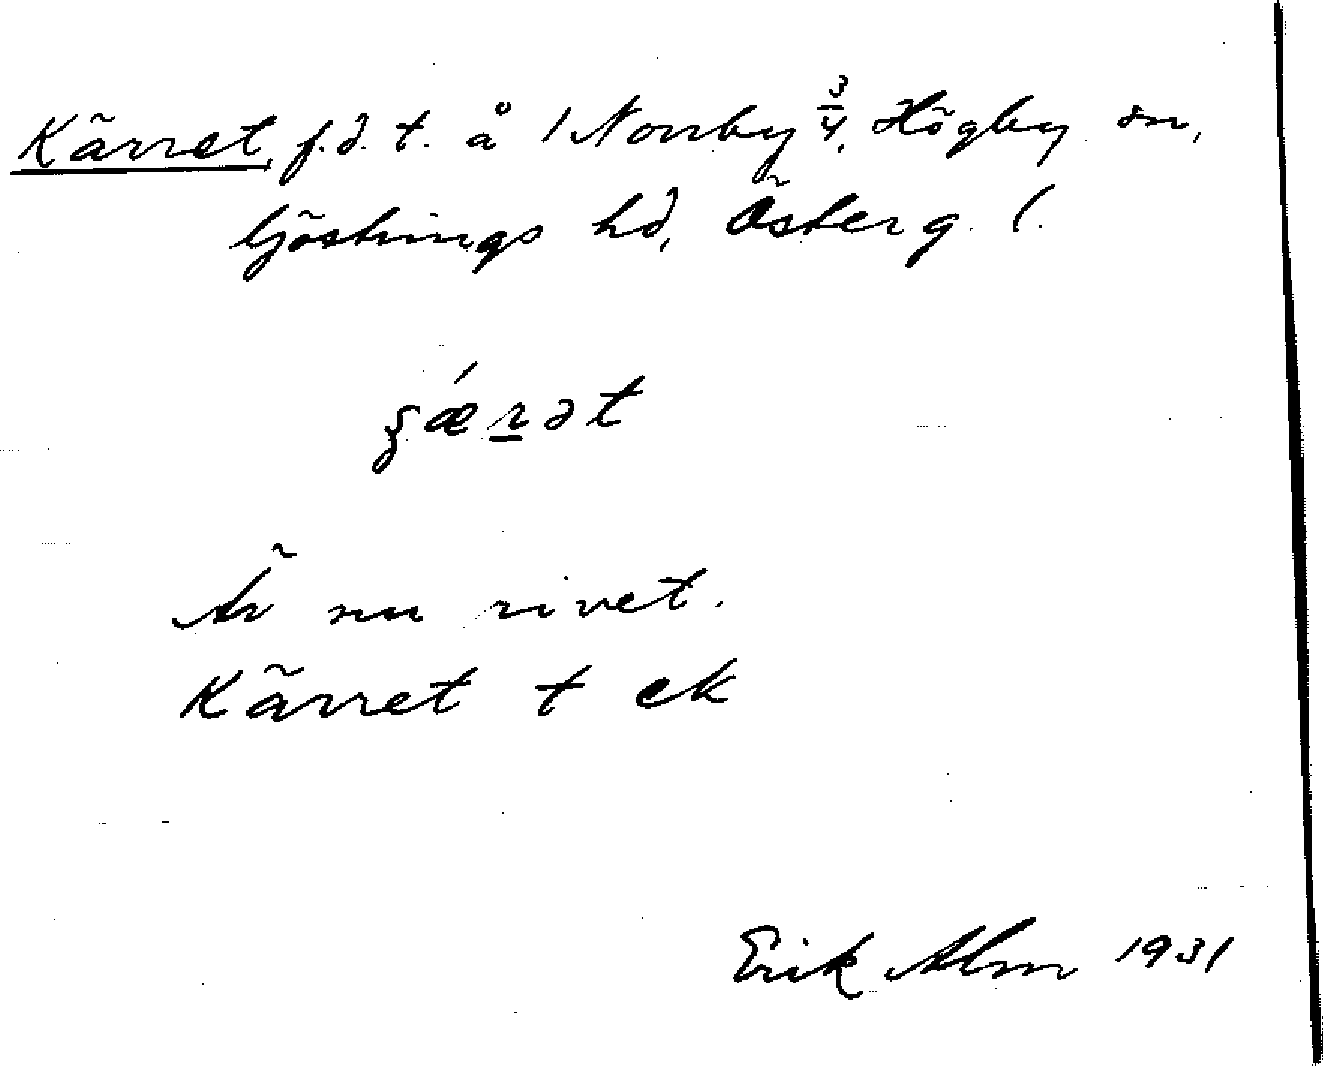 Kärret, f.d. t. å 1 Norrby 3/4, Högby sn,
Göstrings hd, Österg. l.
ɕǽrət
Är nu rivet.
Kärret t ek
Erik Alm 1931